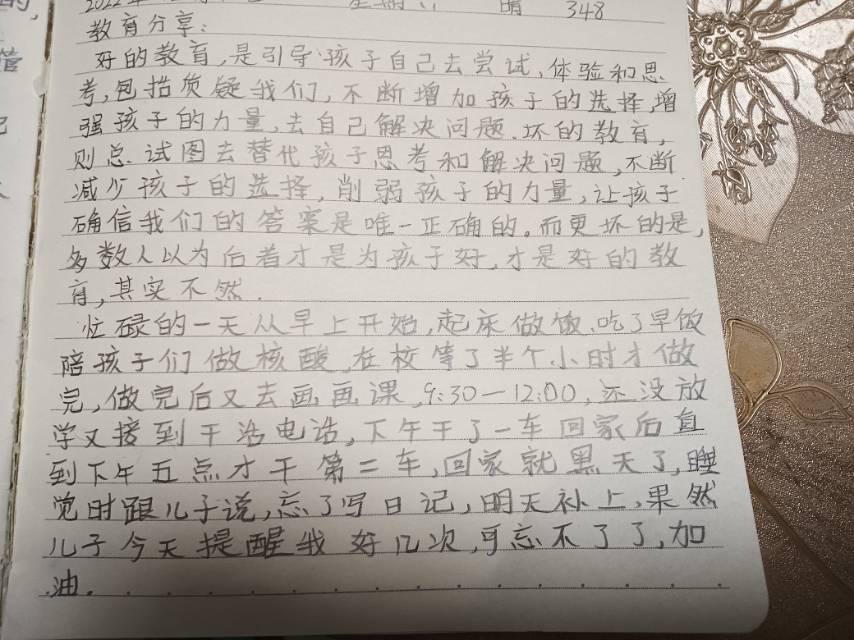 2022年
星期六 晴 348
教育分享:
好的教育,是引导孩子自己去尝试、体验和思
考,包括质疑我们,不断增加孩子的选择,增
强孩子的力量,去自己解决问题.坏的教育,
则总.试图去替代孩子思考和解决问题,不断
减少孩子的选择,削弱孩子的力量,让孩子
确信我们的答案是唯一正确的。而更坏的是,
多数人以为后者才是为孩子好,才是好的教
育,其实不然.
忙碌的一天从早上开始,起床做饭.吃了早饭
陪孩子们做核酸,在校等了半个小时才做
完,做完后又去画画课,9:30—12:00,还没放
学又接到干活电话,下午干了一车回家后直
到下午五点才干第二车,回家就黑天了,睡
觉时跟儿子说,忘了写日记,明天补上,果然
儿子今天提醒我好几次,可忘不了了,加
油.